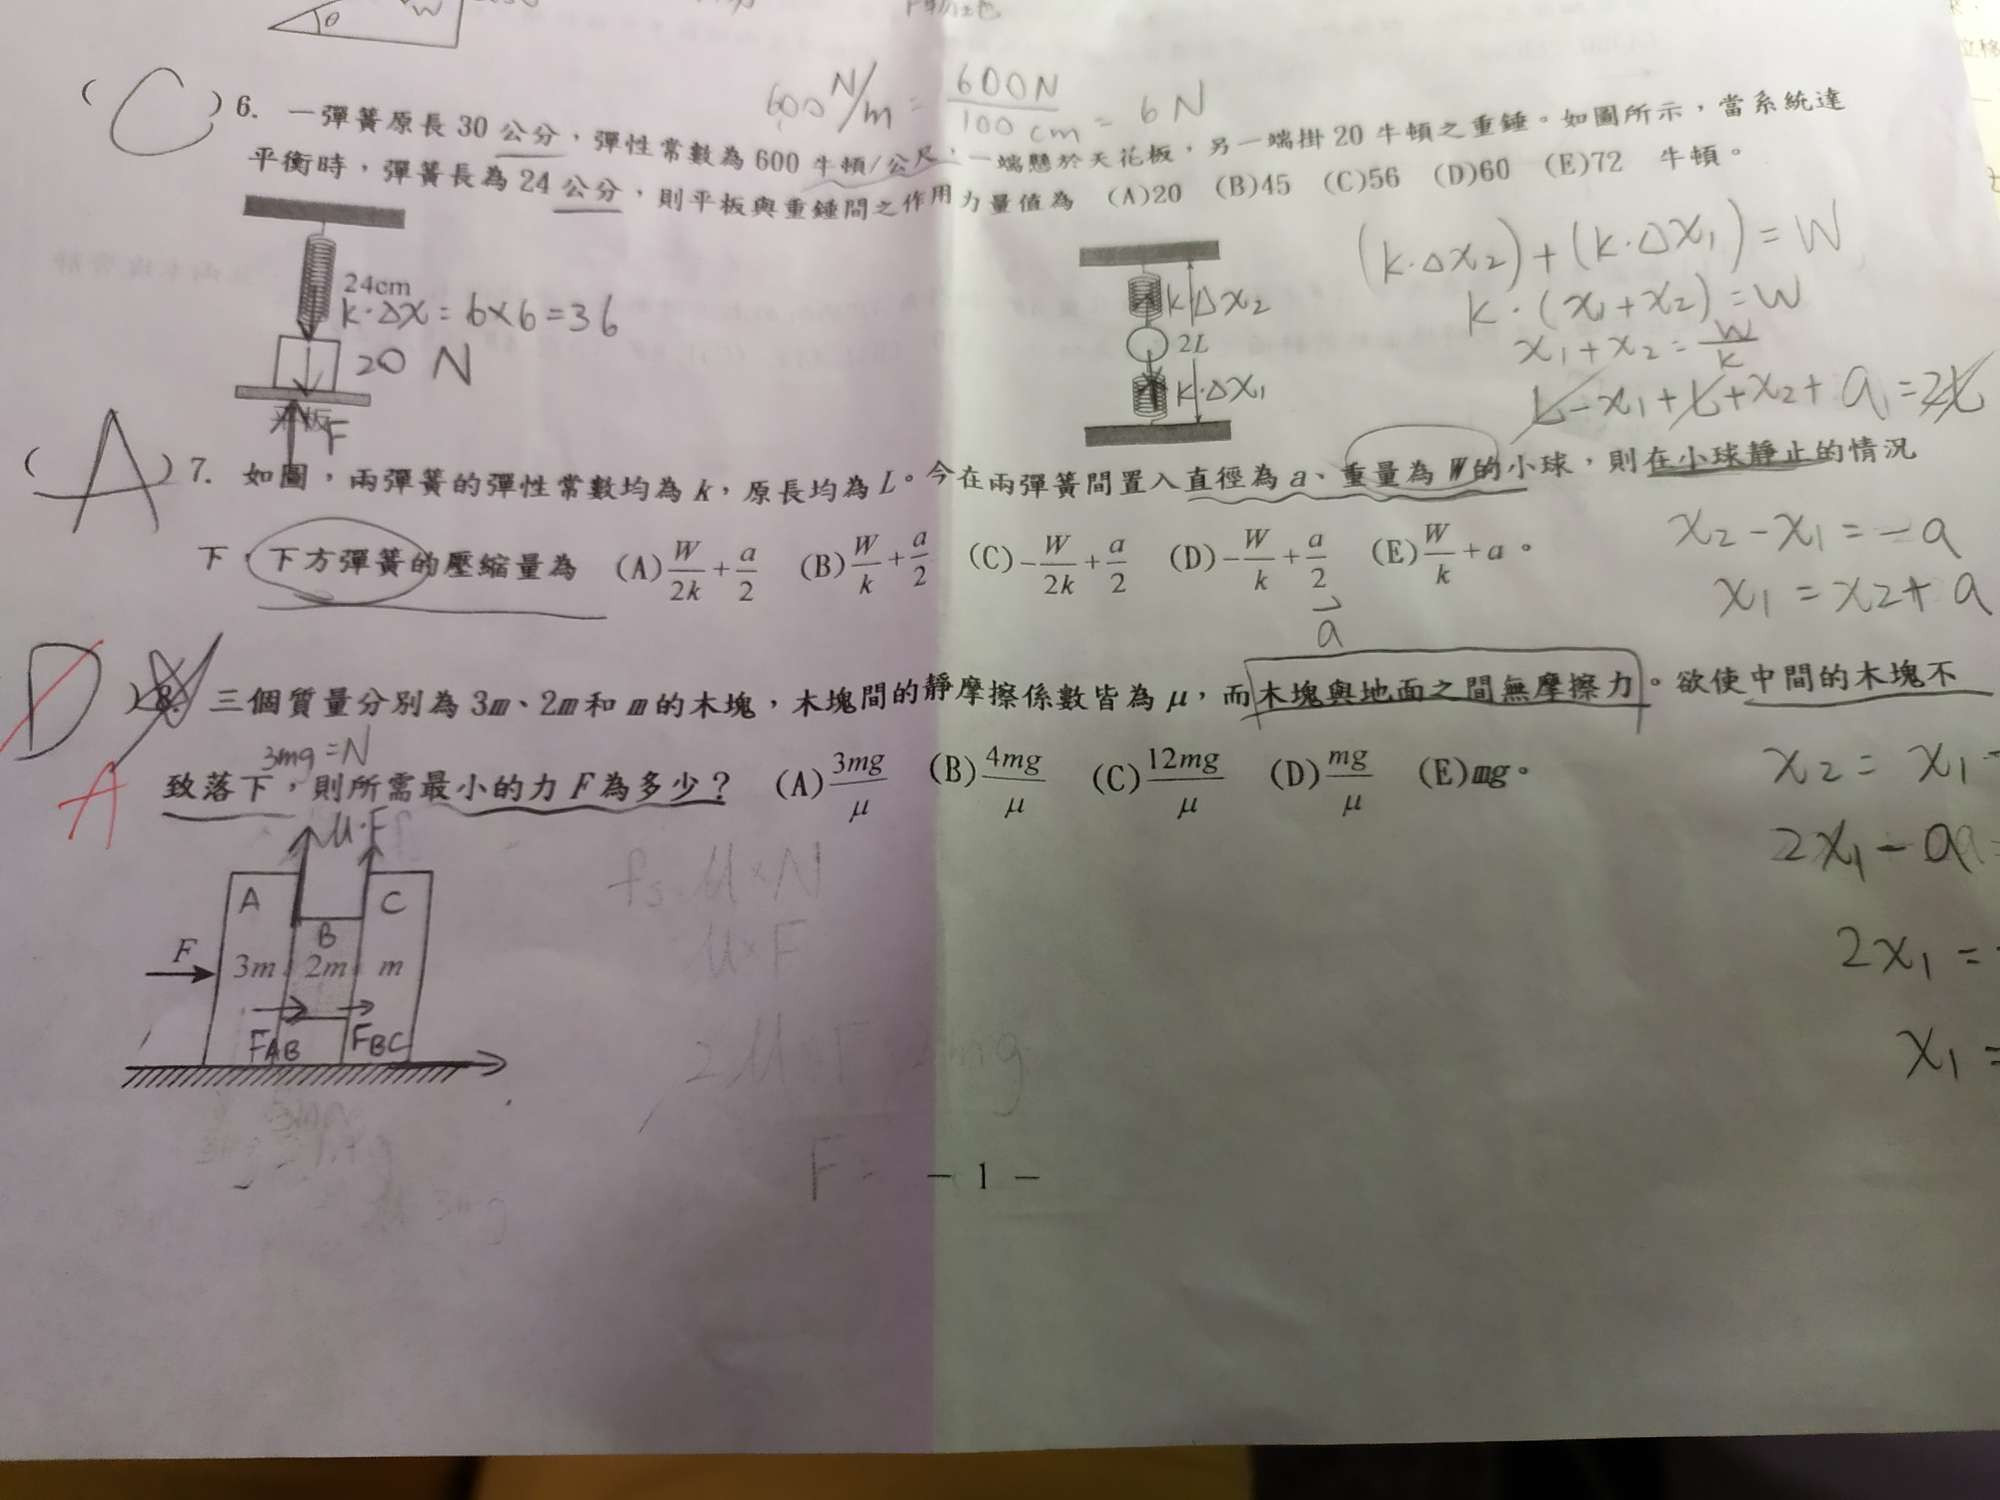 θ W
( C ) 6. 一彈簧原長 30 公分，彈性常數為 600 牛頓/公尺，一端懸於天花板，另一端掛 20 牛頓之重錘。如圖所示，當系統達
600 N/m = 600N / 100 cm = 6 N
平衡時，彈簧長為 24 公分，則平板與重錘間之作用力量值為 (A)20 (B)45 (C)56 (D)60 (E)72 牛頓。
24cm
k·Δx = 6×6=36
20 N
平板
F
k Δx2
2L
k·Δx1
(k·Δx2)+(k·Δx1)=W
k·(x1+x2)=W
x1+x2=W/k
L-x1+L+x2+a=2L
( A ) 7. 如圖，兩彈簧的彈性常數均為 k，原長均為 L。今在兩彈簧間置入直徑為 a、重量為 W 的小球，則在小球靜止的情況
下，下方彈簧的壓縮量為 (A) W/2k + a/2 (B) W/k + a/2 (C) -W/2k + a/2 (D) -W/k + a/2 (E) W/k + a。
x2-x1=-a
x1=x2+a
a
D ) 8. 三個質量分別為 3m、2m 和 m 的木塊，木塊間的靜摩擦係數皆為 μ，而木塊與地面之間無摩擦力。欲使中間的木塊不
3mg=N
A 致落下，則所需最小的力 F 為多少？ (A) 3mg/μ (B) 4mg/μ (C) 12mg/μ (D) mg/μ (E)mg。
x2=x1
2x1-a
2x1=
x1=
μ·F
A B C
F 3m 2m m
FAB FBC
fs μ×N
μ×F
F=
3mg
- 1 -